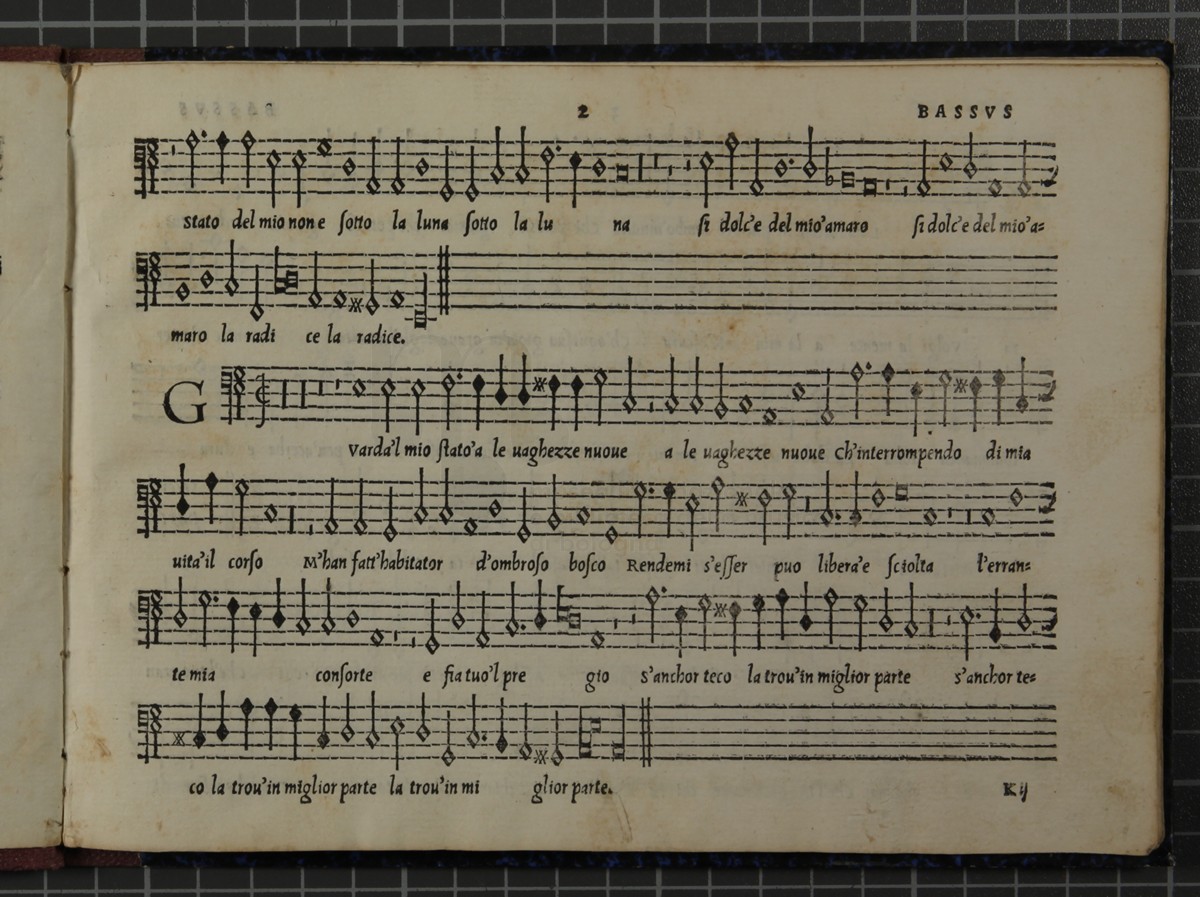 2 BASSVS
stato del mio non e sotto la luna sotto la lu na si dolc'e del mio'amaro si dolc'e del mio'a=
maro la radi ce la radice.
G
Varda'l mio stato'a le uaghezze nuoue a le uaghezze nuoue Ch'interrompendo di mia
uita'il corso M'han fatt'habitator d'ombroso bosco Rendemi s'esser puo libera'e sciolta l'erran=
te mia consorte e fia tuo'l pre gio s'anchor teco la trou'in miglior parte s'anchor te=
co la trou'in miglior parte la trou'in mi glior parte.
K ij